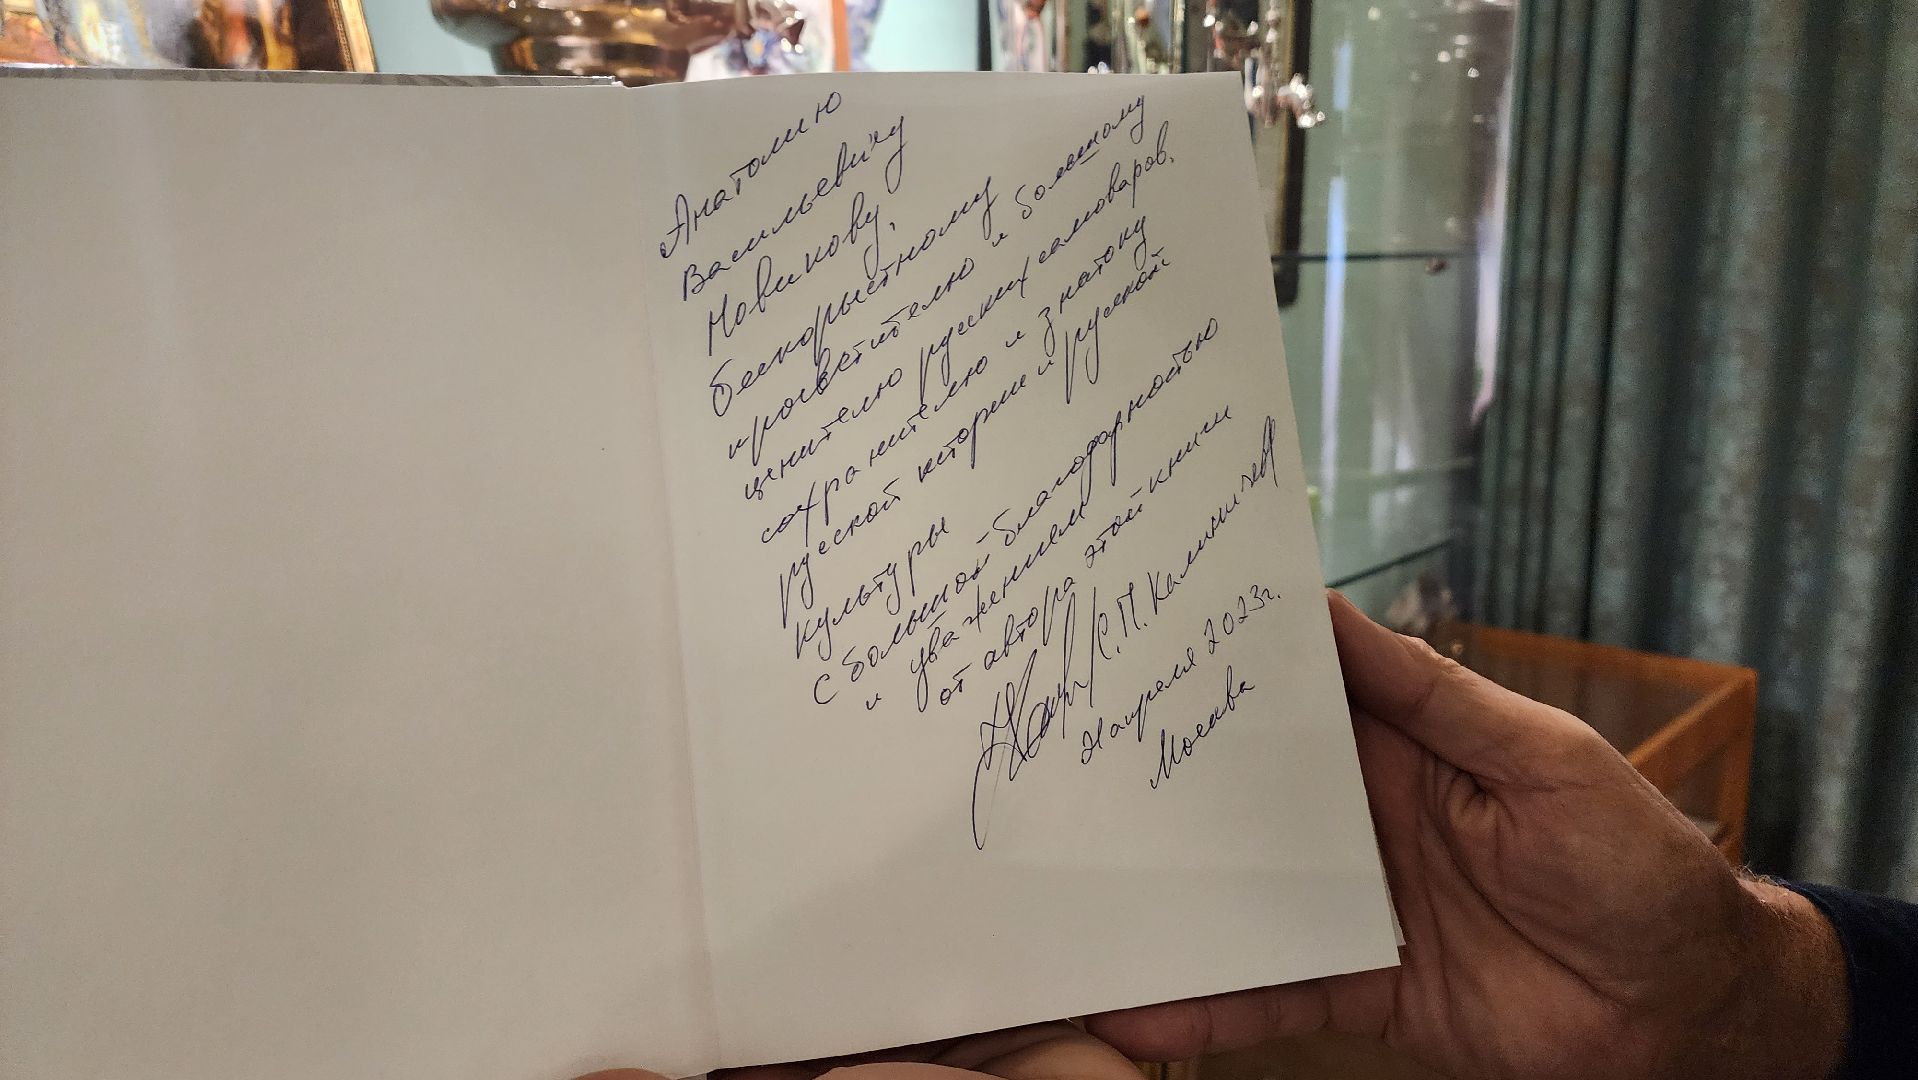 Анатолию
Васильевичу
Новикову,
бескорыстному
просветителю и большому
ценителю русских самоваров,
сохранителю и знатоку
русской истории и русской
культуры
с большой благодарностью
и уважением
от автора этой книги
С.П. Калиничев
апреля 2023г.
Москва